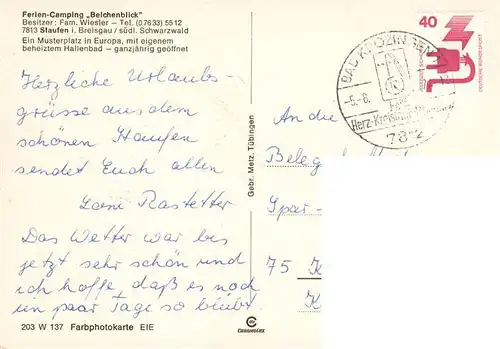 Ferien-Camping „Belchenblick"
Besitzer: Fam. Wiesler – Tel. (07633) 5512
7813 Staufen i. Breisgau / südl. Schwarzwald
Ein Musterplatz in Europa, mit eigenem
beheiztem Hallenbad – ganzjährig geöffnet
Herzliche Urlaubs-
grüsse aus dem
schönen Staufen
sendet Euch allen
Rastetter
Das Wetter war bis
jetzt sehr schön und
ich hoffe, daß es noch
ein paar Tage so bleibt.
203 W 137 Farbphotokarte EIE
Gebr. Metz, Tübingen
CEKADECHROM
40
DEUTSCHE BUNDESPOST
BAD KROZINGEN
-5.-8.
Herz-Kreislauf
An die
Beleg
Spar-
75 K
K